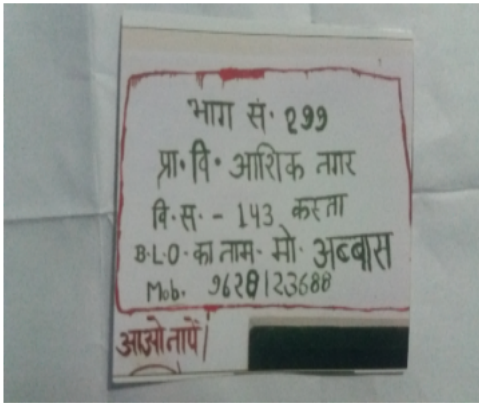 भाग सं. 299
प्रा. वि. आशिक नगर
वि. स. - 143 कस्ता
B.L.O. का नाम- मो. अब्बास
Mob. 9628123688
आओ नापें